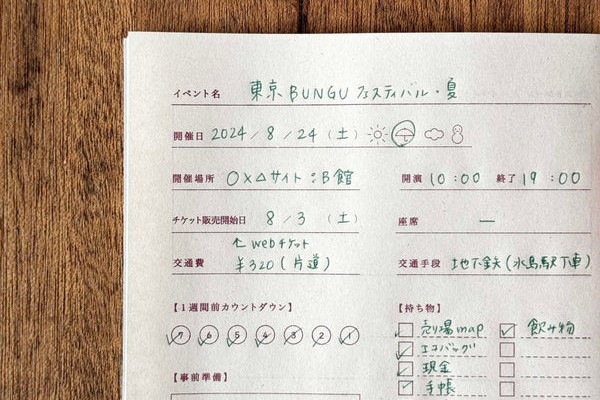 イベント名 東京BUNGUフェスティバル・夏
開催日 2024/8/24(土)
開催場所 〇×△サイト:B館 開演 10:00 終了 19:00
チケット販売開始日 8/3(土) 座席 ー
↑webチケット
交通費 ¥320(片道) 交通手段 地下鉄(水島駅下車)
【1週間前カウントダウン】 【持ち物】
7 6 5 4 3 2 1 売り場map 飲み物
エコバッグ
現金
【事前準備】 手帳